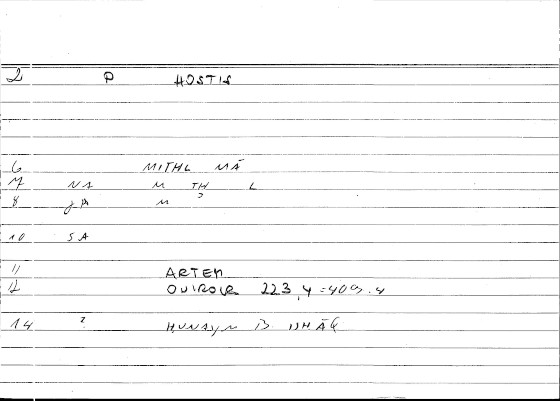 2 P HOSTIS
6 MITHL MĀ
7 NA M TH L
8 M ?
10 SA
11 ARTEM
12 223,4 = 409.4
14 ? HUNAYN B. ISHĀQ